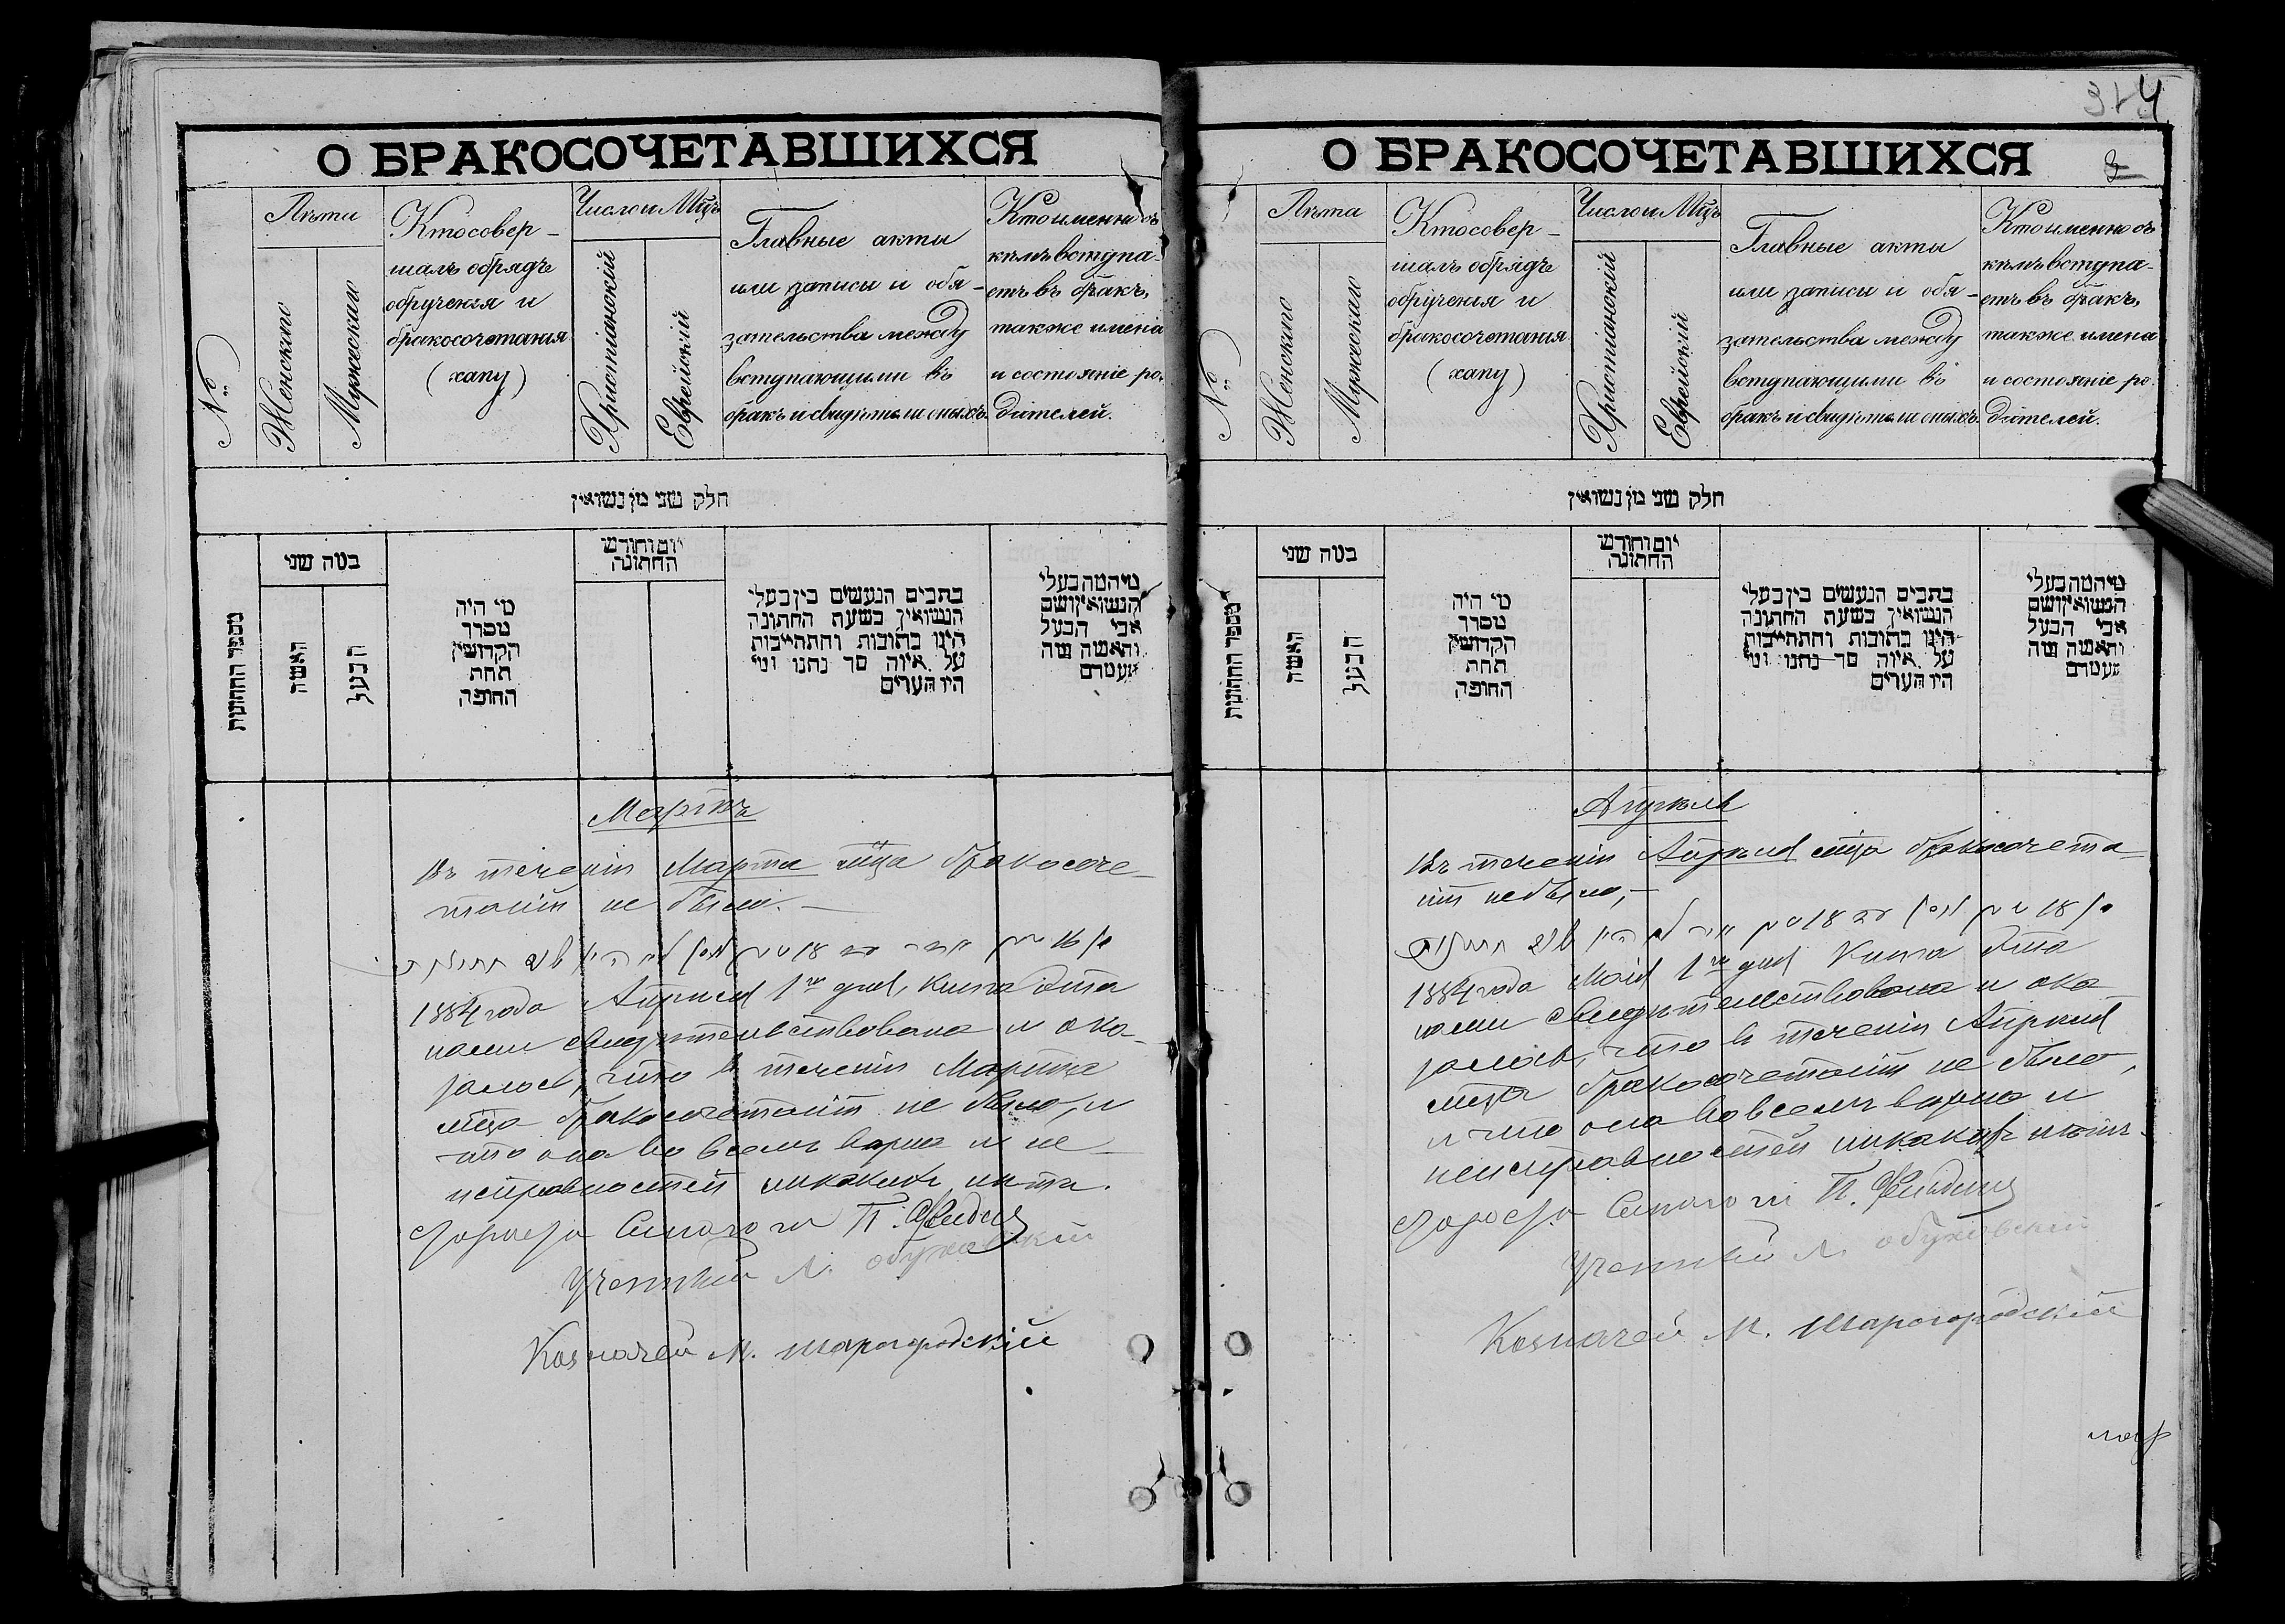 О БРАКОСОЧЕТАВШИХСЯ
№
Лѣта
Женскаго
Мужескаго
Кто совер-
шалъ обрядъ
обрученія и
бракосочетанія
(хапу)
Число и Мѣцъ
Христіанскій
Еврейскій
Главные акты
или записи и обя-
зательства между
вступающими въ
бракъ и свидѣтели оныхъ.
Кто именно съ
кѣмъ вступа-
етъ въ бракъ,
также имена
и состояніе ро-
дителей.
חלק שני מן נשואין
מספר החתונות
כמה שני
האשה
הבעל
מי היה
מסדר
הקדושין
תחת
החופה
יום וחודש
החתונה
כתבים הנעשים בין בעלי
הנשואין בשעת החתונה
היינו כתובות והתחייבות
על איזה סך נתנו ומי
היו העדים
מי המה בעלי
הנשואין ושם
אבי הבעל
והאשה מה
מעמדם
Мартъ
Въ теченіи Марта мца бракосоче-
таній не было. —
1884 года Апрѣля 1го дня, книга эта
нами свидѣтельствована и ока-
залось, что въ теченіи Марта
мца бракосочетаній не было, и
что она во всемъ вѣрна и не-
исправностей никакихъ нѣтъ.
П.
Ученый Л. Обуховскій
Казначей М. Шарогородскій
О БРАКОСОЧЕТАВШИХСЯ
4
№
Лѣта
Женскаго
Мужескаго
Кто совер-
шалъ обрядъ
обрученія и
бракосочетанія
(хапу)
Число и Мѣцъ
Христіанскій
Еврейскій
Главные акты
или записи и обя-
зательства между
вступающими въ
бракъ и свидѣтели оныхъ.
Кто именно съ
кѣмъ вступа-
етъ въ бракъ,
также имена
и состояніе ро-
дителей.
חלק שני מן נשואין
מספר החתונות
כמה שני
האשה
הבעל
מי היה
מסדר
הקדושין
תחת
החופה
יום וחודש
החתונה
כתבים הנעשים בין בעלי
הנשואין בשעת החתונה
היינו כתובות והתחייבות
על איזה סך נתנו ומי
היו העדים
מי המה בעלי
הנשואין ושם
אבי הבעל
והאשה מה
מעמדם
Апрѣль
Въ теченіи Апрѣля мца бракосочета-
ній не было, —
1884 года Мая 1го дня Книга эта
нами свидѣтельствована и ока-
залось, что въ теченіи Апрѣля
мца бракосочетаній не было,
и что она во всемъ вѣрна и
неисправностей никакихъ нѣтъ.
П.
Ученый Л. Обуховскій
Казначей М. Шарогородскій